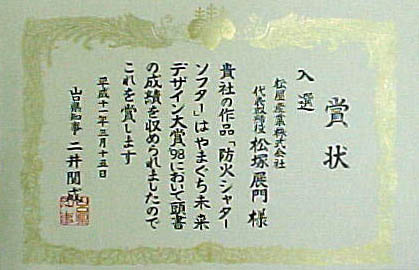 賞状
入選
松屋産業株式会社
代表取締役 松塚展門 様
貴社の作品「防火シャター
ソフター」はやまぐち未来
デザイン大賞'98において頭書
の成績を収められましたので
これを賞します
平成十一年三月十五日
山口県知事 二井関成